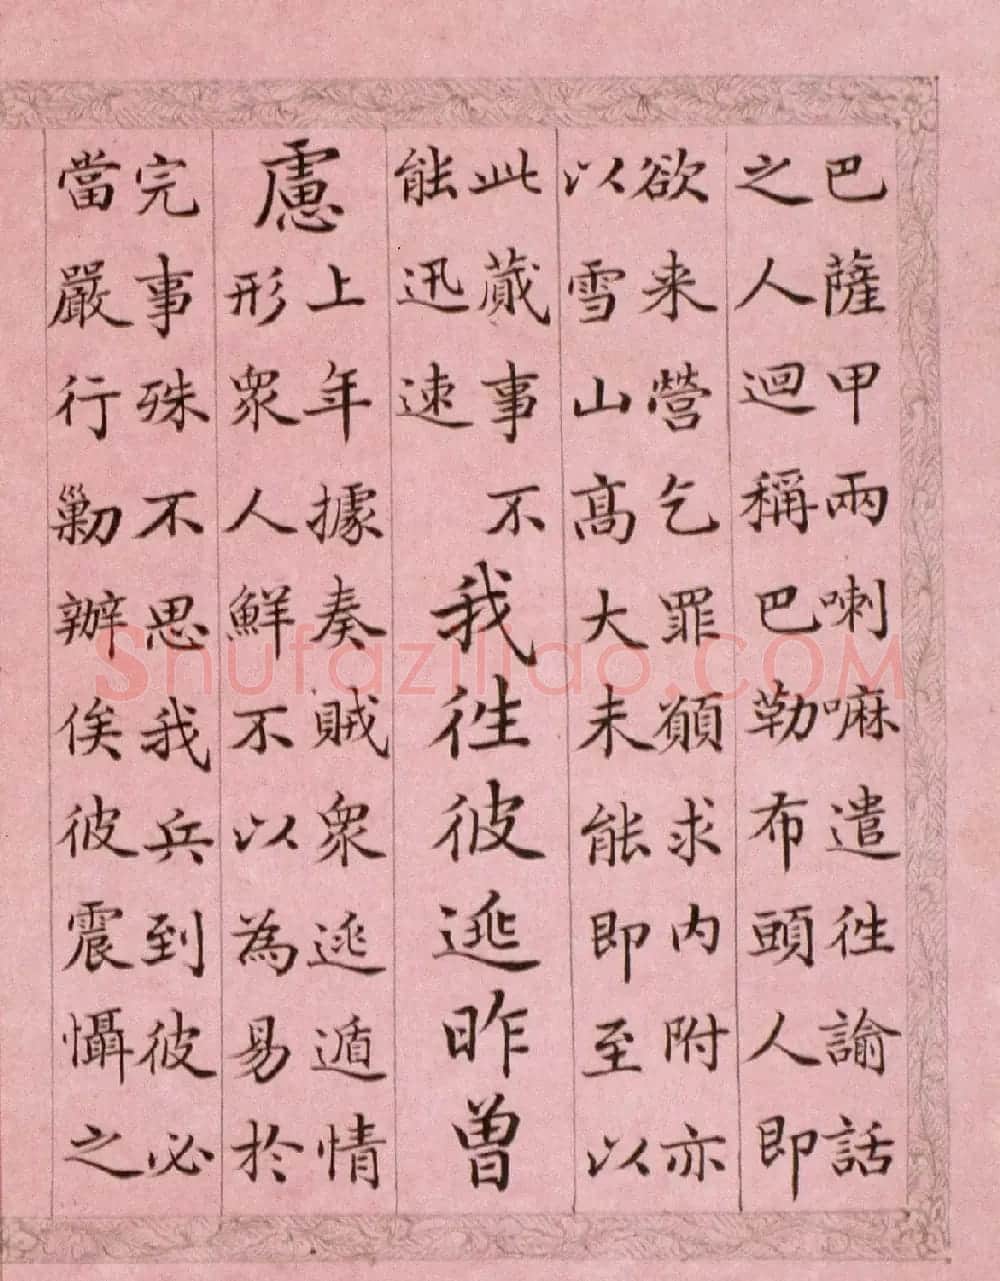 巴薩甲兩喇嘛遣徃諭話
之人迴稱巴勒布頭人即
欲来營乞罪願求内附亦
以雪山髙大未能即至以
此蕆事不
能迅速
我徃彼逃昨曾
慮
上年據奏賊衆逃遁情
形衆人鮮不以為易於
完事殊不思我兵到彼必
當嚴行勦辦俟彼震懾之
Shufaziliao.COM